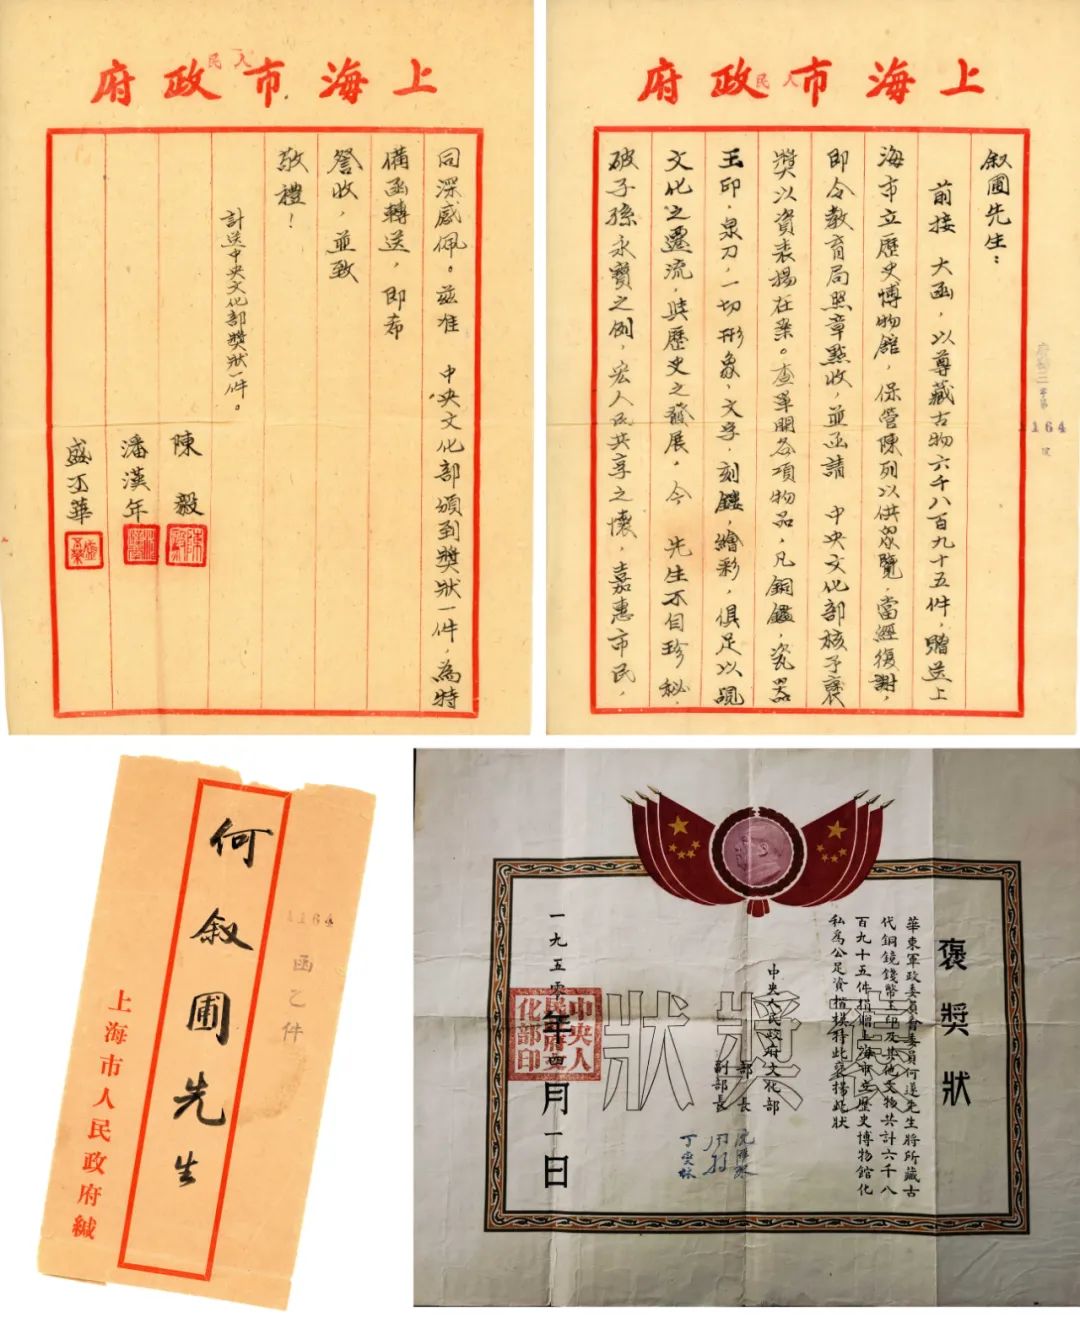 上海市人民政府
叙圃先生：
前接　大函，以尊藏古物六千八百九十五件，贈送上
海市立歷史博物館，保管陳列以供眾覽，當經復謝，
即令教育局照章點收，並函請　中央文化部核予褒
獎以資表揚在案。查單開各項物品，凡銅鏡，瓷器
玉印，泉刀，一切形象，文字，刻鏤，繪彩，俱足以覘
文化之遷流，與歷史之發展。今　先生不自珍秘，
破子孫永寶之例，宏人民共享之懷，嘉惠市民，
164
上海市人民政府
同深感佩。茲准　中央文化部頒到獎狀一件，為特
備函轉送，即希
詧收，並致
敬禮！
計送中央文化部獎狀一件。
陳毅
潘漢年
盛丕華
何叙圃先生
1164
函乙件
上海市人民政府緘
褒獎狀
華東軍政委員會委員何遂先生將所藏古
代銅鏡錢幣玉印及其他文物共計六千八
百九十五件捐贈上海市立歷史博物館化
私為公足資楷模特此褒揚此狀
中央人民政府文化部
部長
副部長
周揚
丁燮林
一九五零年四月一日
中央人民政府文化部印
褒獎狀